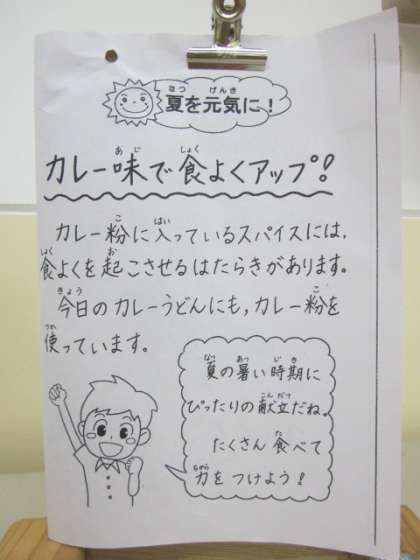 夏を元気に！
カレー味で食よくアップ！
カレー粉に入っているスパイスには、
食よくを起こさせるはたらきがあります。
今日のカレーうどんにも、カレー粉を
使っています。
夏の暑い時期に
ぴったりの献立だね。
たくさん食べて
力をつけよう！